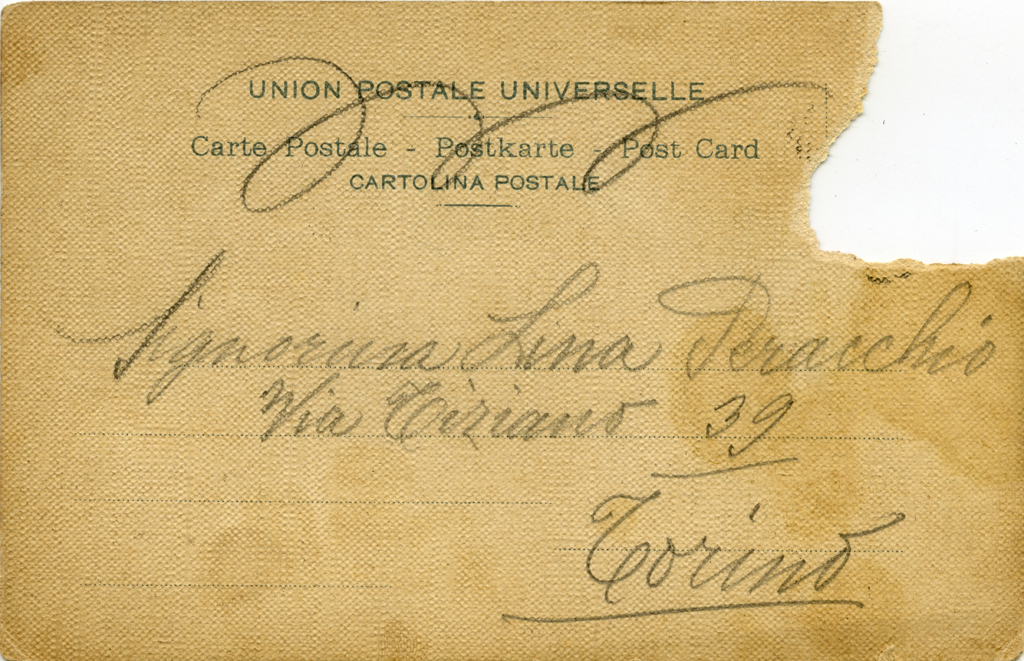 UNION POSTALE UNIVERSELLE
Carte Postale - Postkarte - Post Card
CARTOLINA POSTALE
Signorina Lina Peracchio
Via Tiziano 39
Torino